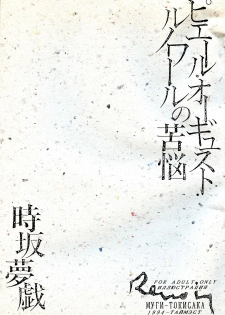 ピエールオーギュスト
ルノワールの苦悩
時坂夢戯
Renoir
FOR ADULT ONLY
ИЛЛЮСТРАЦИЯ
МУГИ-ТОКИСАКА
1994-ТАЙМЭСТ